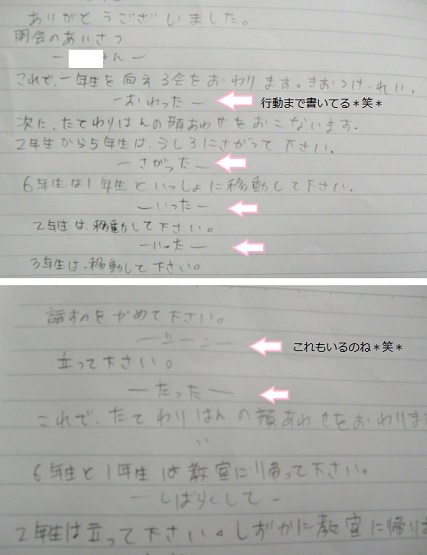 ありがとうございました。
閉会のあいさつ
ー さん ー
これで、一年生を向える会をおわります。きおつけ、れい。
ーおわったー
行動まで書いてる＊笑＊
次に、たてわりはんの顔あわせをおこないます。
2年生から5年生は、うしろにさがって下さい。
ーさがったー
6年生は1年生といっしょに移動して下さい。
ーいったー
2年生は、移動して下さい。
ーいったー
3年生は、移動して下さい。
話すのをやめて下さい。
ーシーンー
これもいるのね＊笑＊
立って下さい。
ーたったー
これで、たてわりはんの顔あわせをおわりま
〃
6年生と1年生は教室に帰って下さい。
ーしばらくしてー
2年生は立って下さい。しずかに教室に帰り